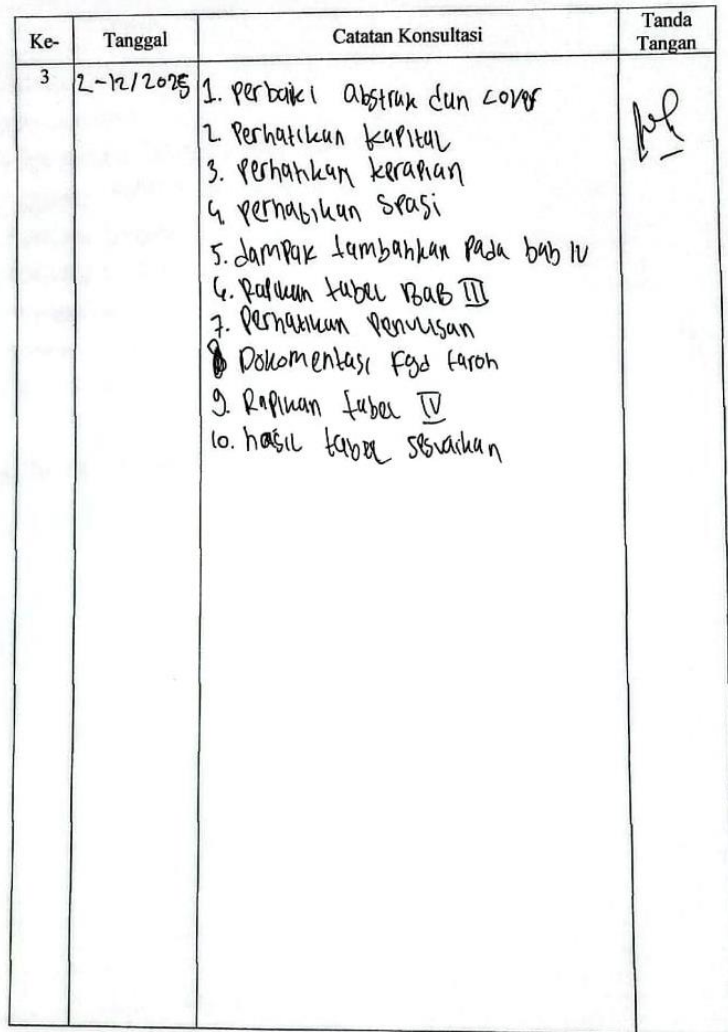 Ke- Tanggal Catatan Konsultasi Tanda Tangan
3 2-12/2025 1. perbaiki abstrak dan cover
2 Perhatikan kapital
3. perhatikan kerapian
4 perhatikan spasi
5. dampak tambahkan pada bab IV
6. Rapikan tabel BAB III
7. Perhatikan Penulisan
8 Dokomentasi Fgd taroh
9. Rapikan tabel IV
10. hasil tabel sesuaikan